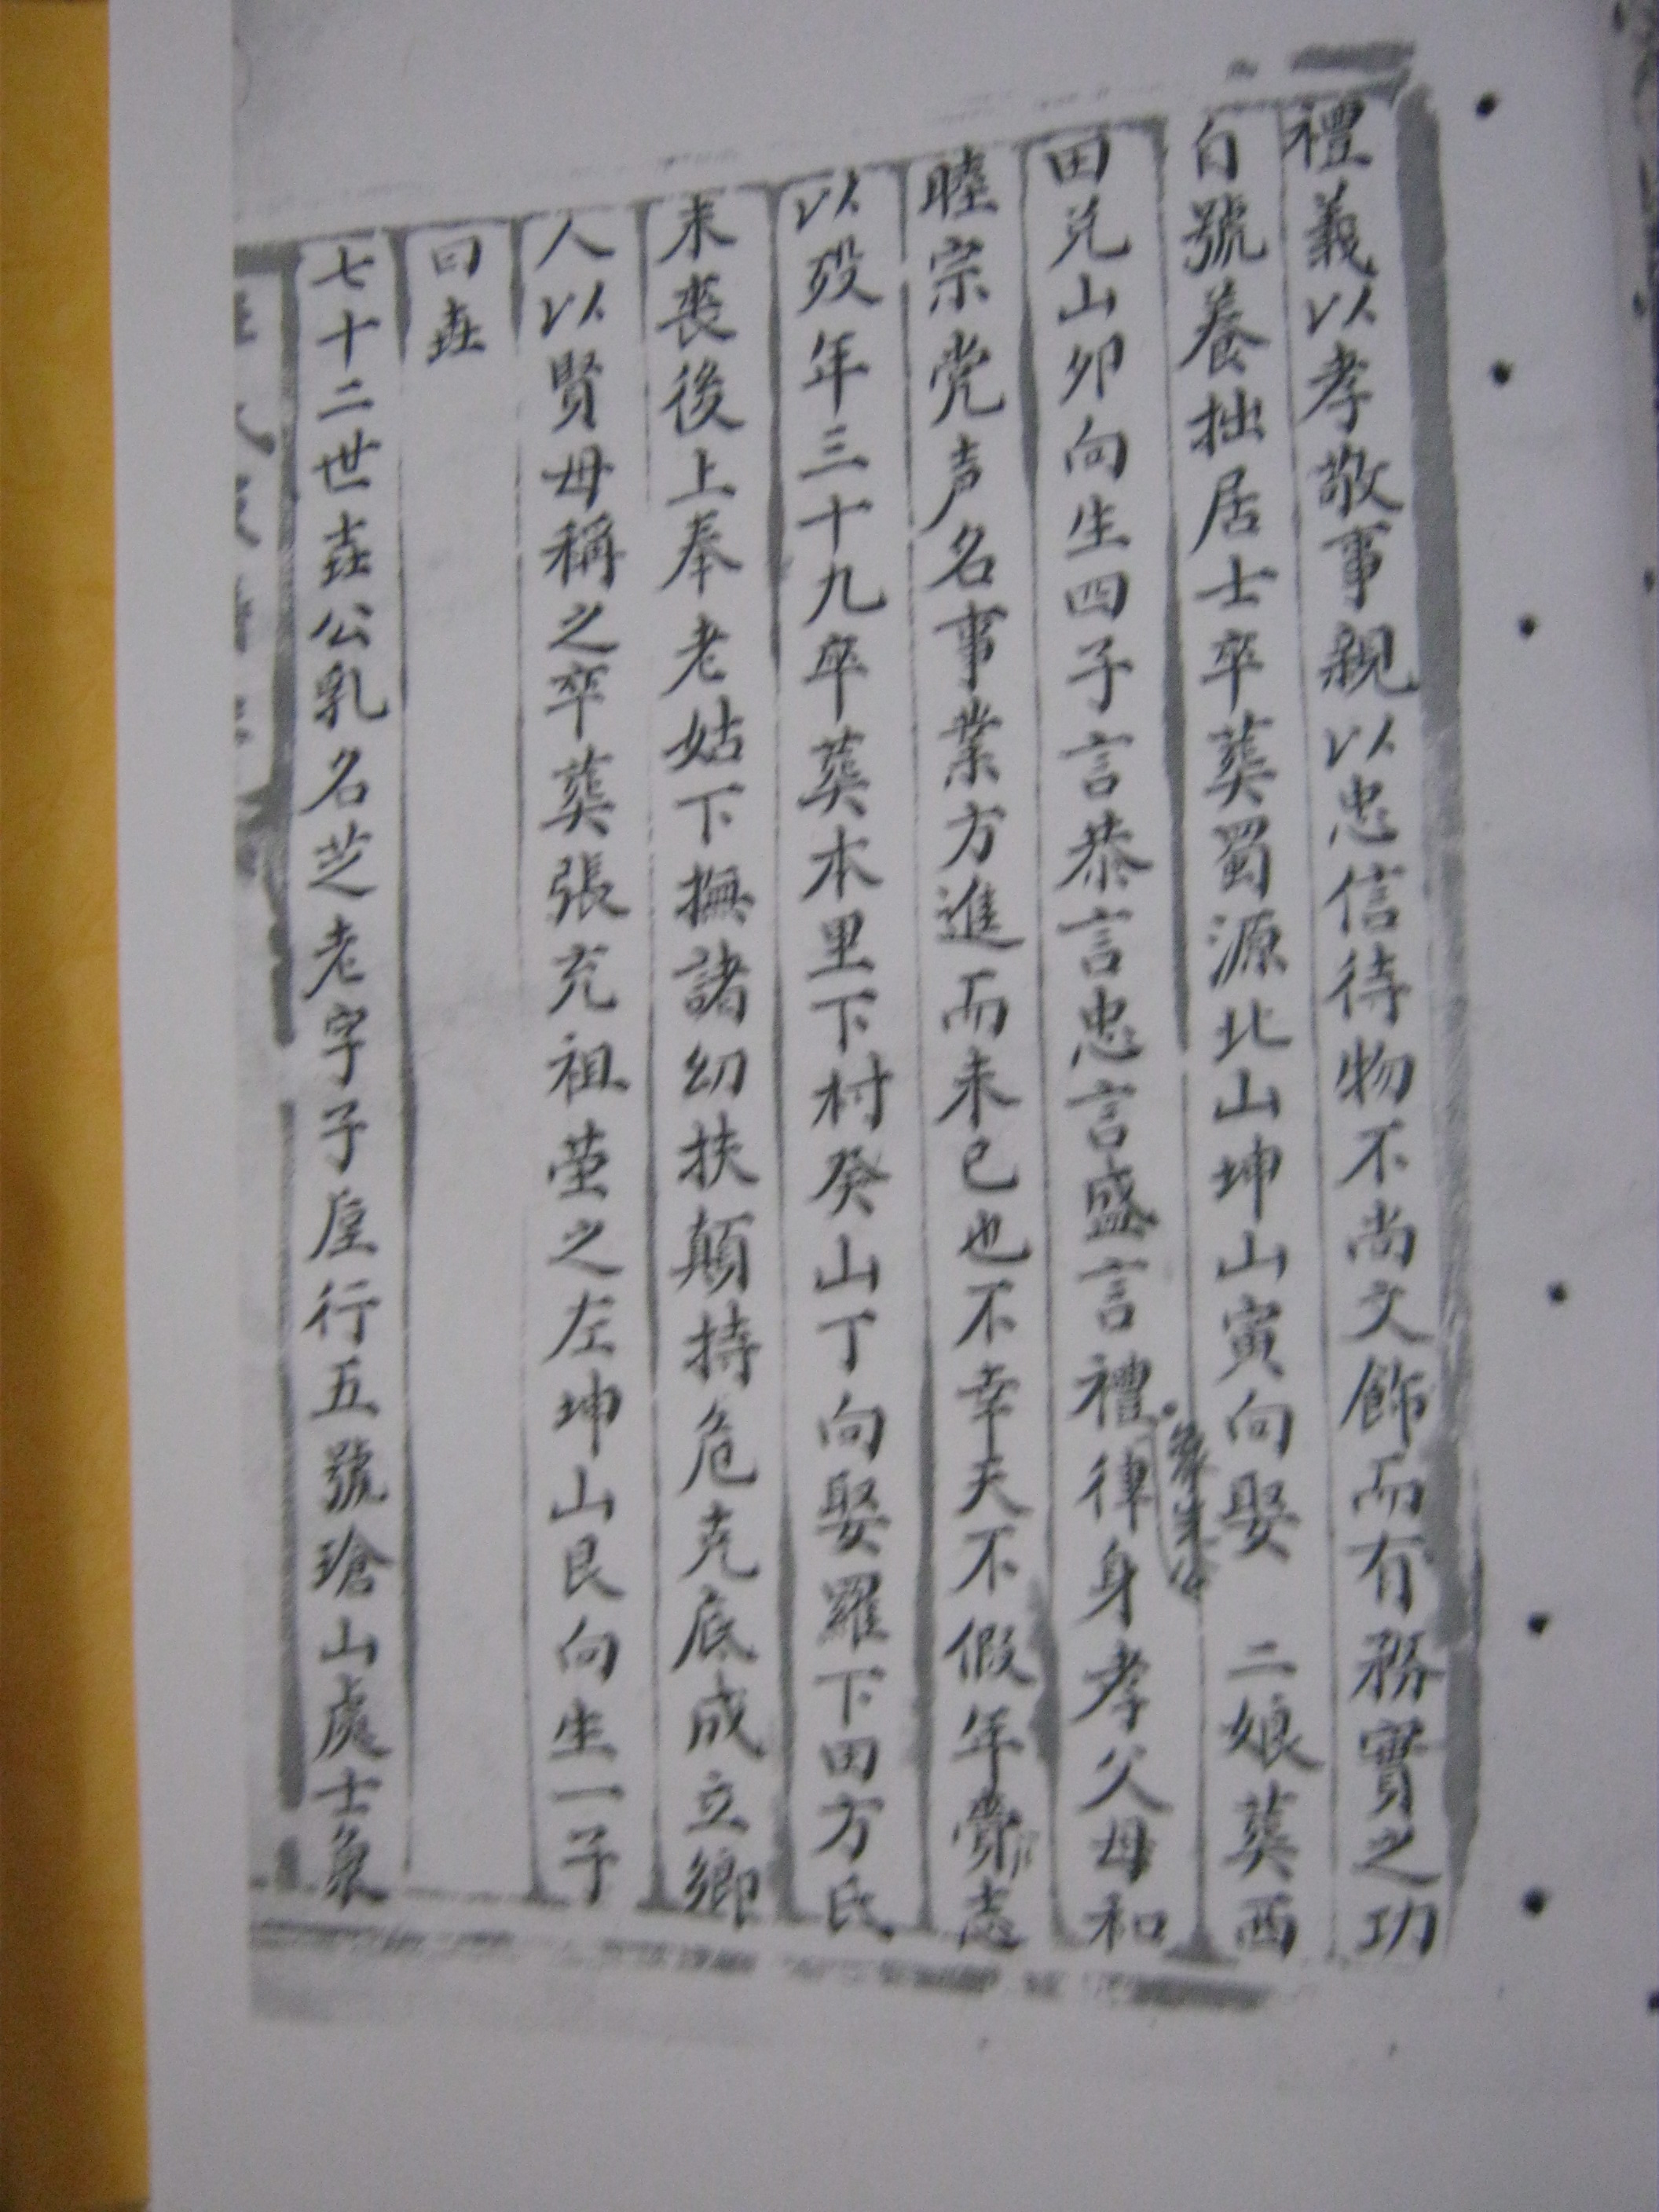 禮義以孝敬事親以忠信待物不尚文飾而有務實之功
自號養拙居士卒葬蜀源北山坤山寅向娶 二娘葬西
田兑山卯向生四子言恭言忠言盛言禮律身孝父母和
睦宗党声名事業方進而未已也不幸天不假年賫志
以歿年三十九卒葬本里下村癸山丁向娶羅下田方氏
未喪後上奉老姑下撫諸幼扶顛持危克底成立鄉
人以賢母稱之卒葬張充祖塋之左坤山艮向生一子
曰壵
七十二世壵公乳名芝老字子厓行五號瑲山處士象